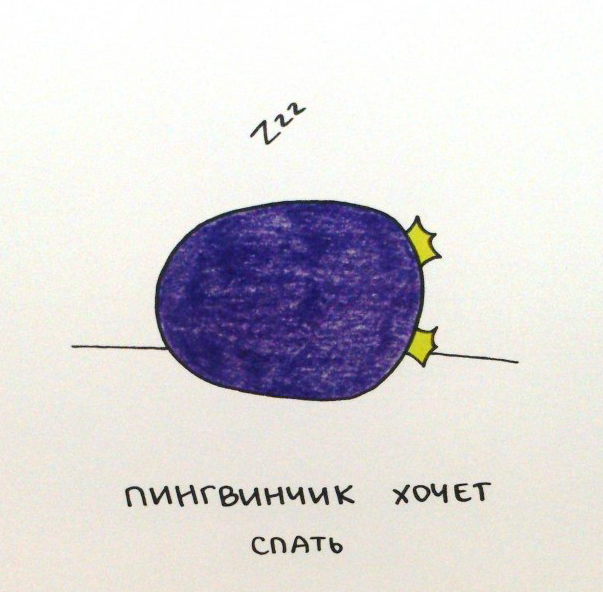 Zzz
ПИНГВИНЧИК ХОЧЕТ
СПАТЬ